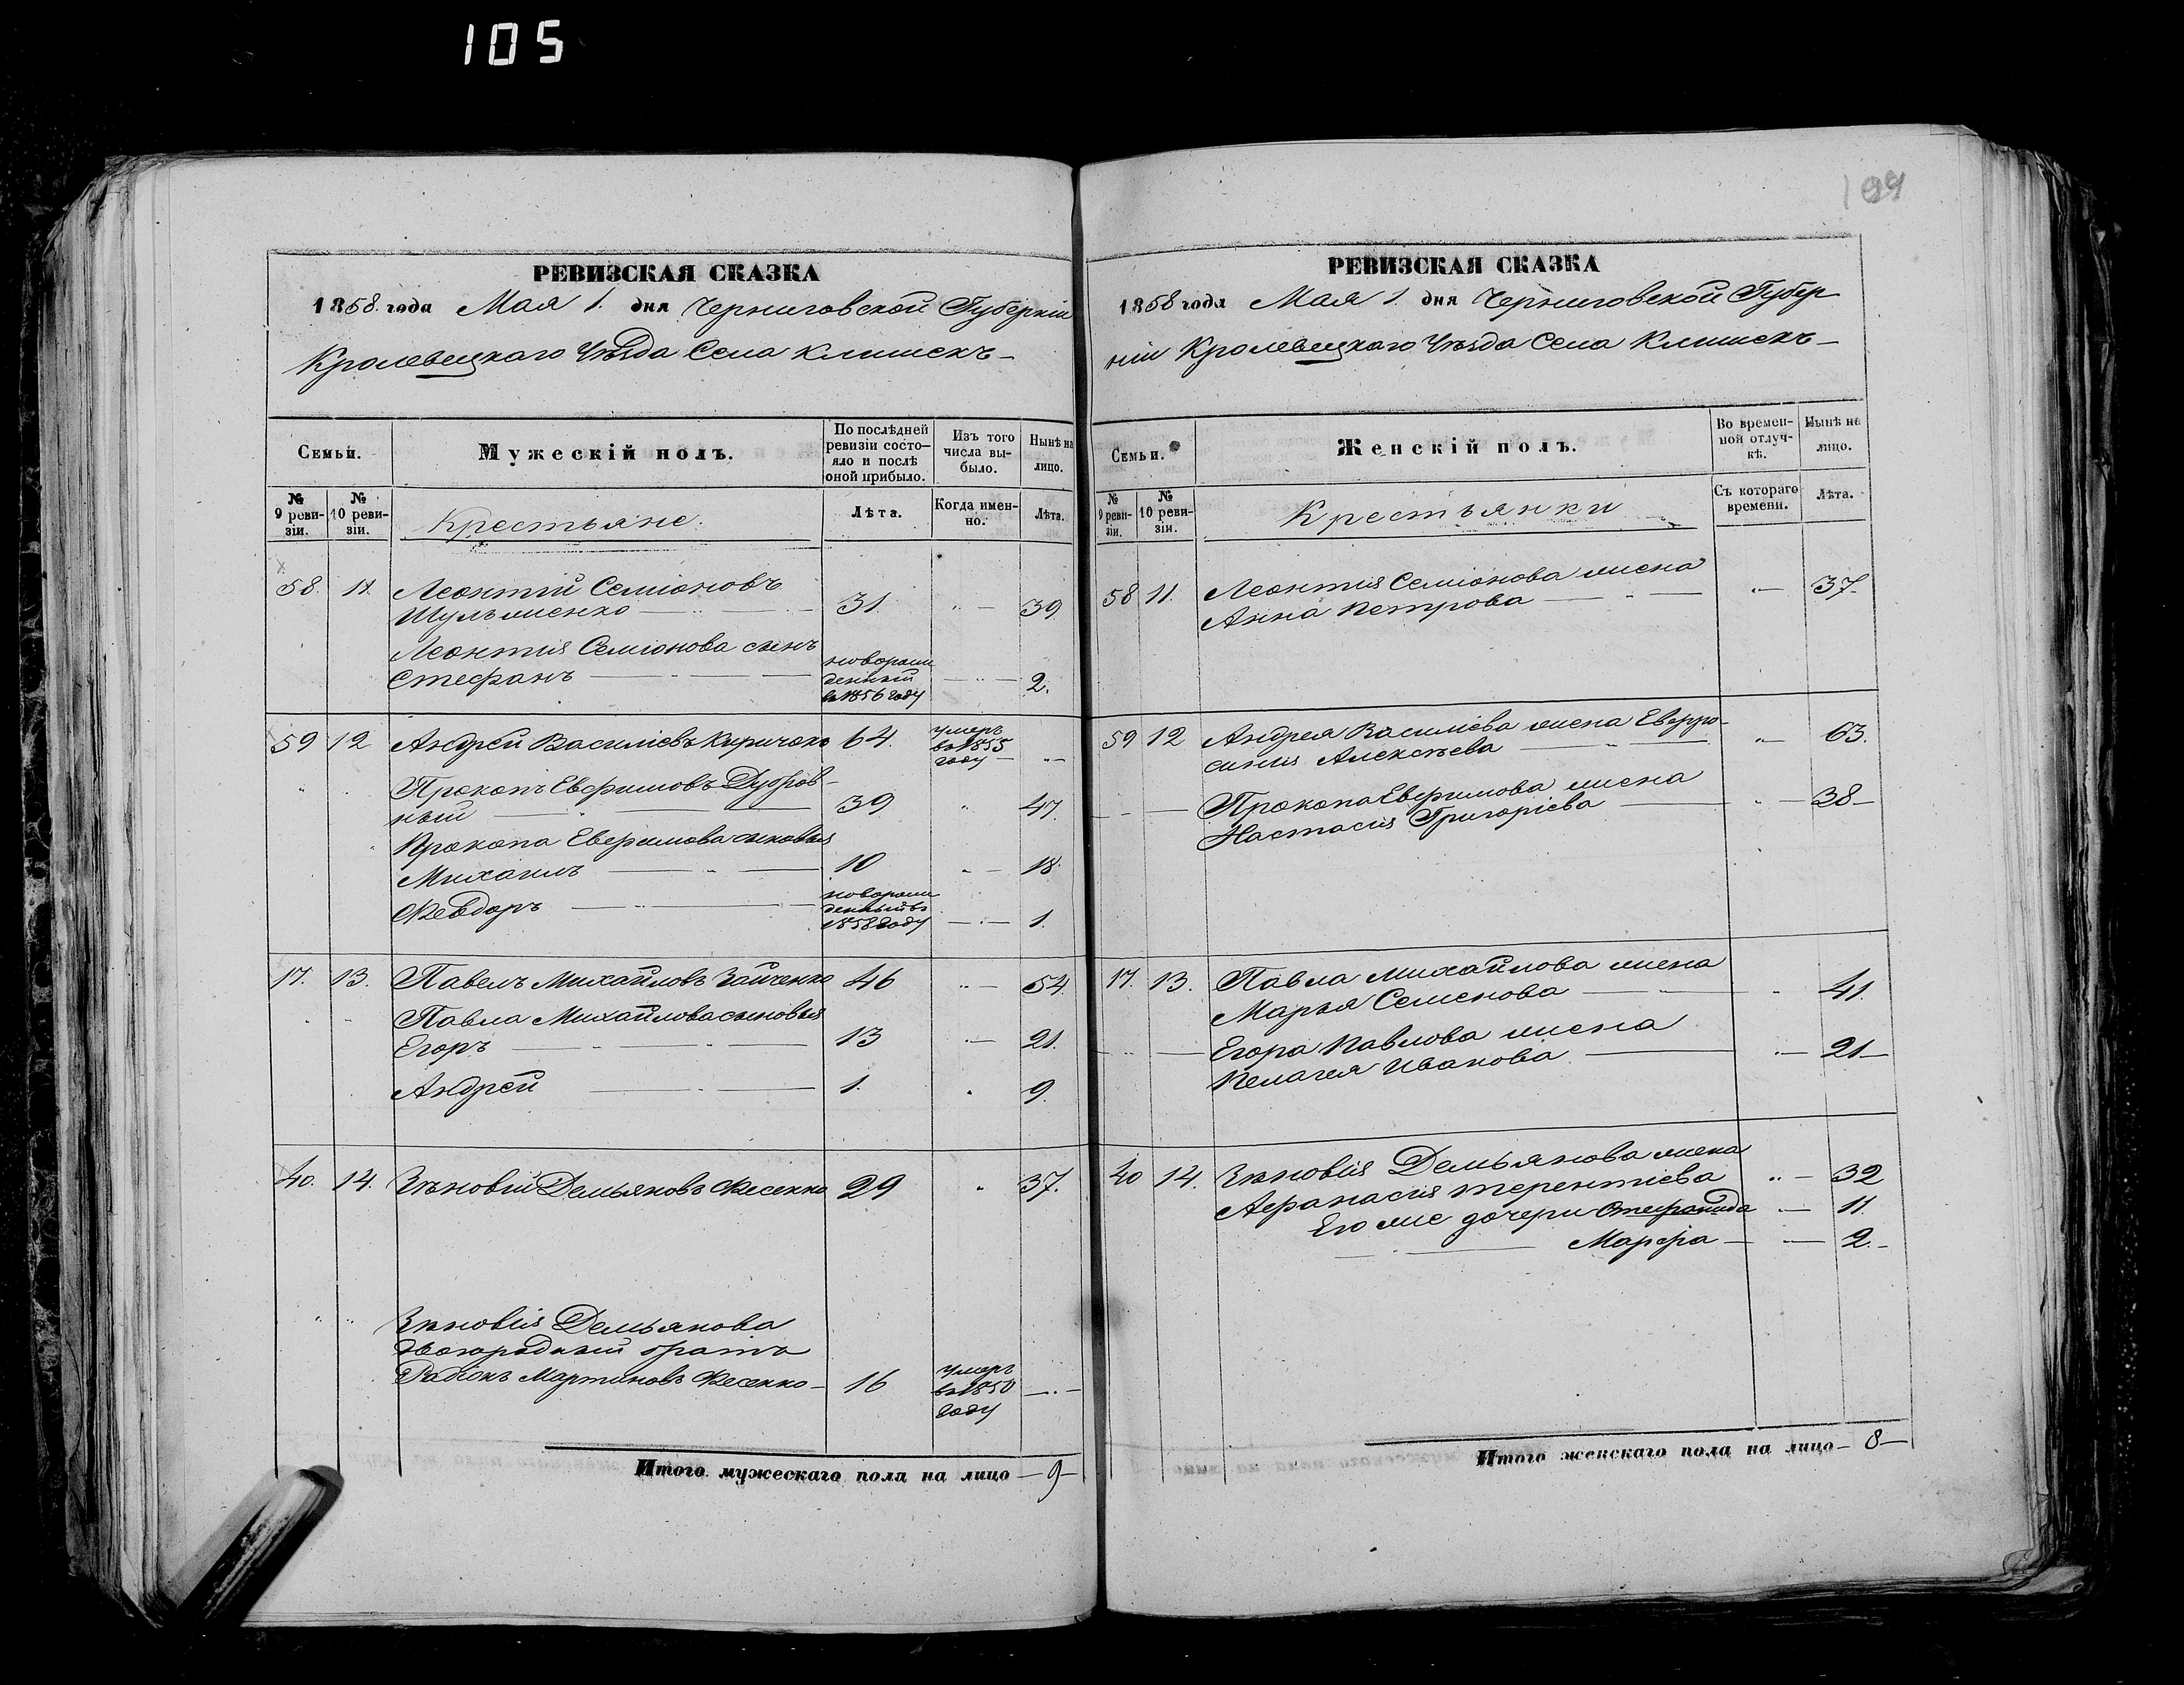 105
199
РЕВИЗСКАЯ СКАЗКА
1858. года Мая 1. дня Черниговской Губерніи
Кролевецкаго Уѣзда Села Клишекъ
Семьи.
Мужескій полъ.
По послѣдней ревизіи состояло и послѣ оной прибыло.
Изъ того числа выбыло.
Нынѣ на лицо.
№ 9 ревизіи.
№ 10 ревизіи.
Крестьяне.
Лѣта.
Когда именно.
Лѣта.
58. 11. Леонтій Семіоновъ
Шульженко 31. 39
Леонтія Семіонова сынъ
Стефанъ новорожденный въ 1856 году 2.
59 12 Андрей Василіевъ Киричокъ 64. умеръ въ 1855 году
Прокопъ Евфимовъ Дубров-
ный 39 47.
Прокопа Евфимова сыновья
Михаилъ 10 18.
Февдоръ новорожденный въ 1858 году 1.
17. 13. Павелъ Михайловъ Зайченко 46 54.
Павла Михайлова сыновья
Егоръ 13 21.
Андрей 1. 9.
40. 14. Зѣновій Демьяновъ Фесенко 29 37.
Зѣновія Демьянова
двоюродный братъ
Родіонъ Мартиновъ Фесенко 16 умеръ въ 1850 году
Итого мужескаго пола на лицо — 9 —
РЕВИЗСКАЯ СКАЗКА
1858 года Мая 1. дня Черниговской Губер
ніи Кролевецкаго Уѣзда Села Клишекъ
Семьи.
Женскій полъ.
Во временной отлучкѣ.
Нынѣ на лицо.
№ 9 ревизіи.
№ 10 ревизіи.
Крестьянки
Съ котораго времени.
Лѣта.
58 11. Леонтія Семіонова жена
Анна Петрова 37
59 12 Андрея Василіева жена Евфро-
синія Алексѣева 63.
Прокопа Евфимова жена
Настасія Григоріева 38
17. 13. Павла Михайлова жена
Марья Семенова 41.
Егора Павлова жена
Пелагея Иванова 21
40 14. Зѣновія Демьянова жена
Афанасія Терентіева 32
Его же дочери Стефанида 11.
Марфа 2.
Итого женскаго пола на лицо — 8 —